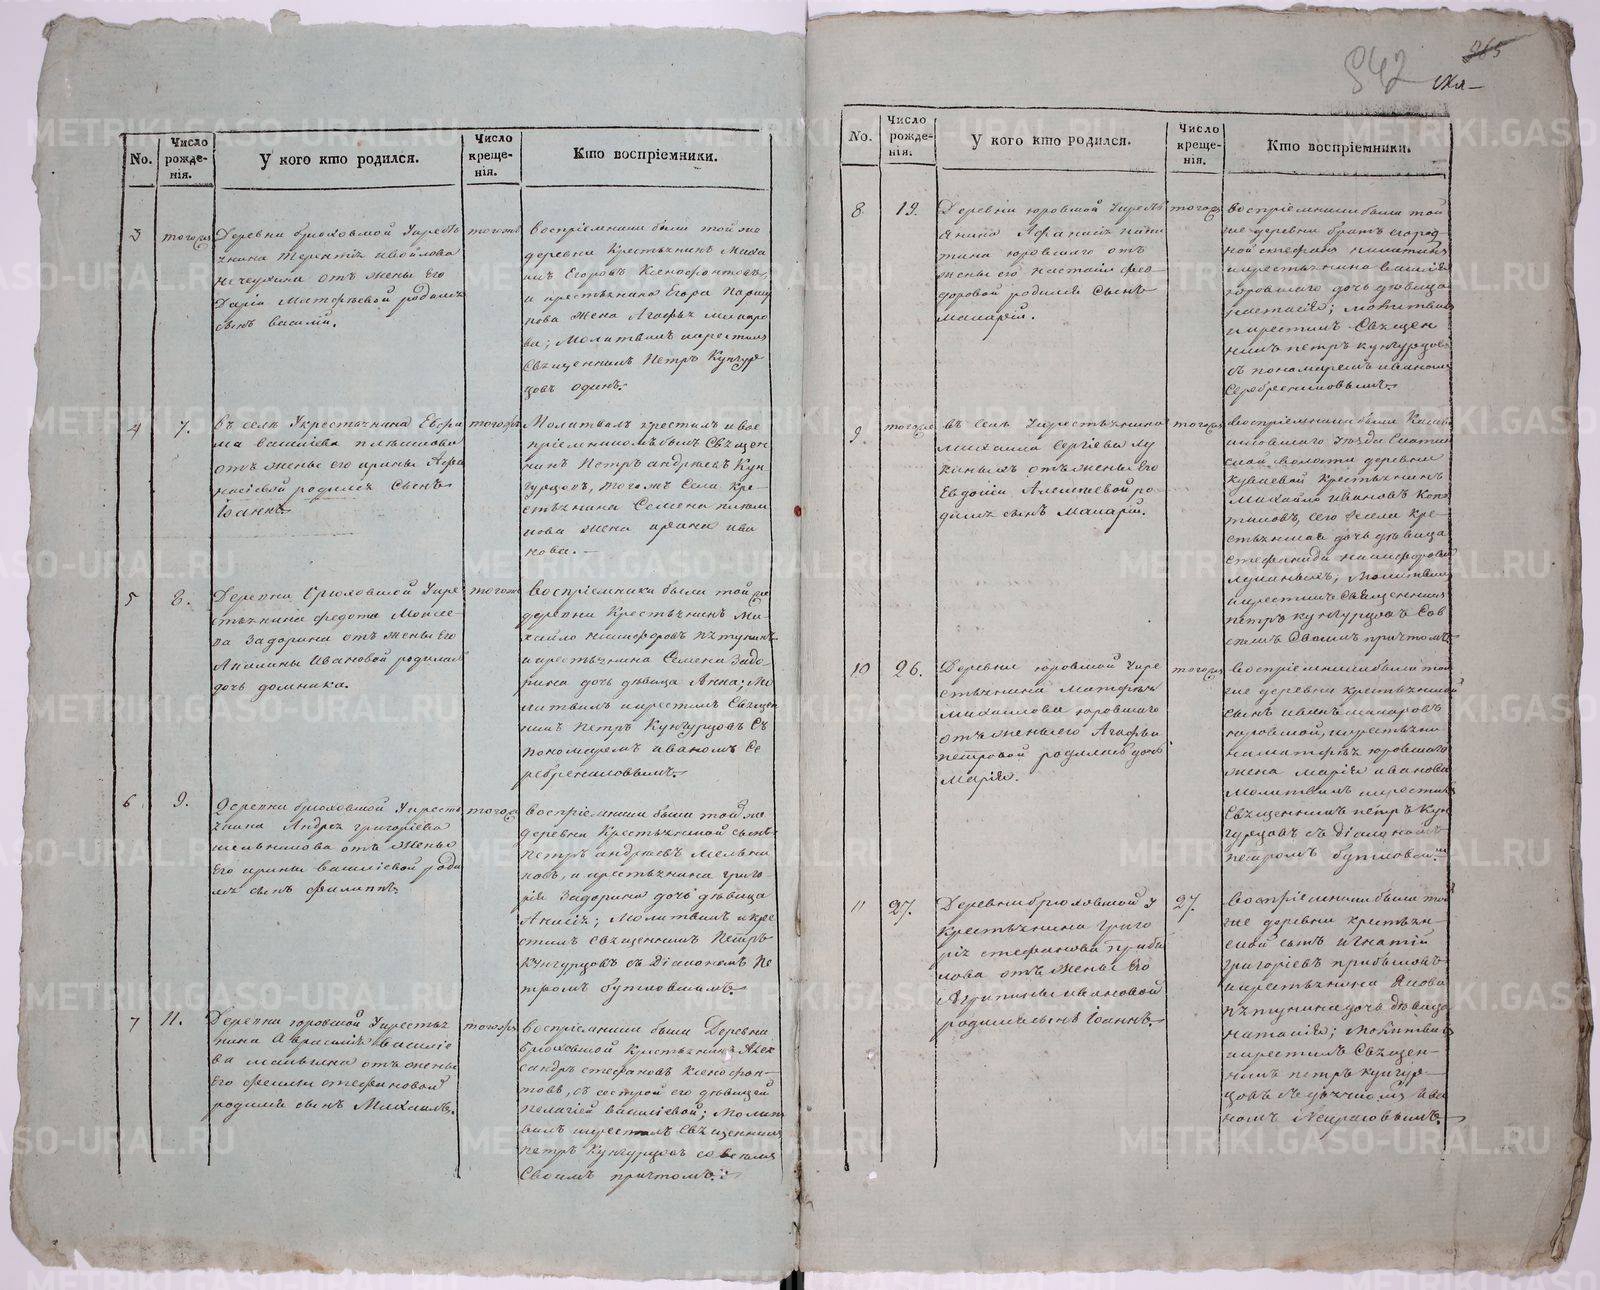 No.
Число рожде-нія.
У кого кто родился.
Число креще-нія.
Кто воспріемники.
3
тогоже
Деревни брюховской Укресть
янина Терентія
от жены Его
Даріи Матфѣевой родился
сынъ василій.
тогоже
воспріемники были той же
деревни Крестьянинъ Миха
илъ Егоровъ Ксенофонтовъ,
и крестьянина Егора
жена Агафья Макаро
ва; Молитвилъ икрестилъ
Священникъ Петръ Кунгур
цовъ одинъ.
4
7.
въ селѣ Укрестьянина Ефре
ма василіева
отъ жены его ирины Афа
насіевой родился Сынъ
Іоаннъ.
тогоже
Молитвилъ крестилъ ивос
пріемникомъ былъ Священ
никъ Петръ андреевъ Кун
гурцовъ, тогожъ Села кре-
стьянина Семена
жена ива
нова.
5
8.
Деревни Брюховской Укре
стьянина федота Моисее-
ва Задорина отъ жены Его
Акилины Ивановой родилась
дочь домника.
тогоже
воспріемники были той же
деревни Крестьянинъ Ми-
хайло никифоровъ пѣтунинъ
икрестьянина Семена Задо-
рина дочь дѣвица Анна; Мо
литвилъ икрестилъ Священ
никъ Петръ Кунгурцовъ Съ
пономаремъ иваномъ Се
ребрениковымъ.
6
9.
Деревни брюховской Укресть
янина Андрея григоріева
мельникова отъ жены
Его ирины василіевой роди
лся сынъ филиппъ.
тогоже
воспріемники были той же
деревни Крестьянской сынъ
петръ андреевъ Мельни
ковъ, и крестьянина григо-
рія Задорина дочь дѣвица
Анисія; Молитвилъ икре
стилъ священникъ Петръ
Кунгурцовъ съ Діакономъ Пе
тромъ бутковскимъ.
7
11.
Деревни юровской Укресть
янина василіе
ва отъ жены
Его феклы стефановой
родился сынъ Михаилъ.
тогоже
воспріемники были Деревни
брюховской Крестьянинъ Алек
сандръ стефановъ Ксенофон-
товъ, съ сестрой его дѣвицей
пелагіей василіевой; Молит
вилъ икрестилъ Священникъ
Петръ Кунгурцовъ со всемъ
Своимъ причтомъ.
842
965
No.
Число рожде-нія.
У кого кто родился.
Число креще-нія.
Кто воспріемники.
8
19.
Деревни юровской Укресть
янина Афанасія ники
тина юровскаго отъ
жены его настасіи фео-
доровой родился Сынъ
макарій.
тогоже
воспріемники были той
же деревни братъ
ной стефанъ никитинъ
икрестьянина василія
юровскаго дочь дѣвица
настасія; молитвилъ
икрестилъ Священ
никъ петръ кунгурцовъ
съ пономаремъ иваномъ
Серебрениковымъ.
9
тогоже
въ Селѣ Укрестьянина
михаила Сергіева лу
киныхъ отъ жены Его
Евдокіи Алексѣевой ро
дился сынъ Макарій.
тогоже
воспріемники были
Уѣзда
волости деревни
Крестьянинъ
Михайло ивановъ
сего Села кре-
стьянская дочь дѣвица
стефанида никифорова
лукиныхъ; Молитвилъ
икрестилъ Священникъ
петръ кунгурцовъ Сов
семъ Своимъ причтомъ.
10
26.
Деревни юровской Укре
стьянина Матфея
Михаилова юровскаго
отъ жены его Агафьи
петровой родилась дочь
Марія.
тогоже
воспріемники были той
же деревни крестьянской
сынъ иванъ макаровъ
юровской, икрестьяни
на матфея юровскаго
жена марія иванова
Молитвилъ икрестилъ
Священникъ петръ Кун
гурцовъ съ Діакономъ
петромъ бутковским.
11
27.
Деревни брюховской У
крестьянина Григо
рія стефанова прибы
лова отъ жены Его
Агрипины ивановой
родился сынъ Іоаннъ.
27.
воспріемники были той
же деревни крестьян-
ской сынъ игнатій
григоріевъ прибыловъ
икрестьянина Якова
пѣтунина дочь дѣвица
наталія; Молитвилъ
икрестилъ Священ-
никъ петръ кунгур-
цовъ съ дьячкомъ ива
номъ Некрасовымъ.
METRIKI.GASO-URAL.RU